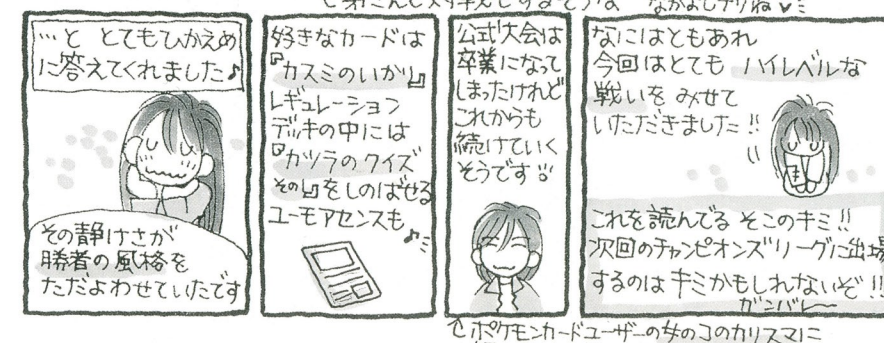 弟さんと対戦してるそうな なかよしデスね
…と とてもひかえめ
に答えてくれました♪
その静けさが
勝者の風格を
ただよわせていたです
好きなカードは
『カスミのいかり』
レギュレーション
デッキの中には
『カツラのクイズ
その1』をしのばせる
ユーモアセンスも
公式大会は
卒業になって
しまったけれど
これからも
続けていく
そうです
なにはともあれ
今回はとても ハイレベルな
戦いを みせて
いただきました!!
これを読んでる そこのキミ!!
次回のチャンピオンズリーグに出場
するのは キミかもしれないぞ!!
ガンバレ〜
ポケモンカードユーザーの女のコのカリスマに